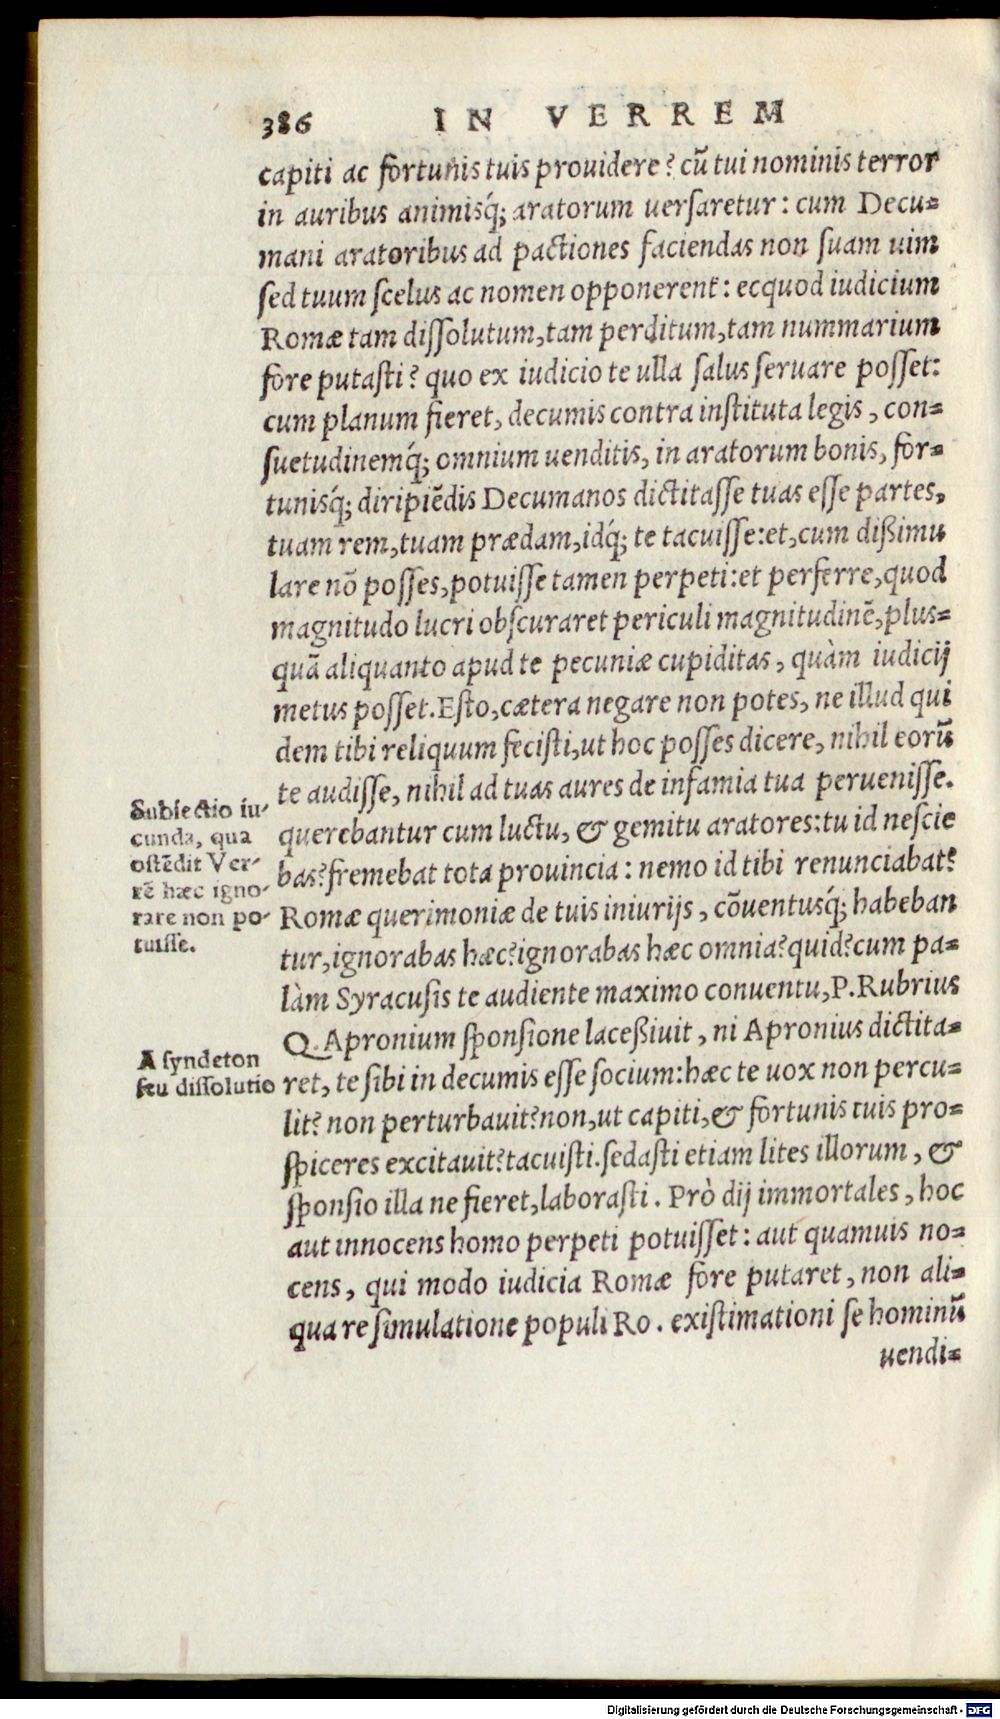 386 IN VERREM
capiti ac fortunis tuis prouidere? cũ tui nominis terror
in auribus animisq́; aratorum uersaretur: cum Decu-
mani aratoribus ad pactiones faciendas non suam uim
sed tuum scelus ac nomen opponerent: ecquod iudicium
Romæ tam dissolutum, tam perditum, tam nummarium
fore putasti? quo ex iudicio te ulla salus seruare posset:
cum planum fieret, decumis contra instituta legis, con-
suetudinemq́; omnium uenditis, in aratorum bonis, for-
tunisq́; diripiẽdis Decumanos dictitasse tuas esse partes,
tuam rem, tuam prædam, idq́; te tacuisse: et, cum dißimu
lare nõ posses, potuisse tamen perpeti: et perferre, quod
magnitudo lucri obscuraret periculi magnitudinẽ, plus-
quã aliquanto apud te pecuniæ cupiditas, quàm iudicij
metus posset. Esto, cætera negare non potes, ne illud qui
dem tibi reliquum fecisti, ut hoc posses dicere, nihil eorũ
te audisse, nihil ad tuas aures de infamia tua peruenisse.
querebantur cum luctu, & gemitu aratores: tu id nescie
bas? fremebat tota prouincia: nemo id tibi renunciabat?
Romæ querimoniæ de tuis iniurijs, cõuentusq́; habeban
tur, ignorabas hæc? ignorabas hæc omnia? quid? cum pa-
làm Syracusis te audiente maximo conuentu, P. Rubrius
Q. Apronium sponsione laceßiuit, ni Apronius dictita-
ret, te sibi in decumis esse socium: hæc te uox non percu-
lit? non perturbauit? non, ut capiti, & fortunis tuis pro-
spiceres excitauit? tacuisti. sedasti etiam lites illorum, &
sponsio illa ne fieret, laborasti. Prò dij immortales, hoc
aut innocens homo perpeti potuisset: aut quamuis no-
cens, qui modo iudicia Romæ fore putaret, non ali-
qua re simulatione populi Ro. existimationi se hominũ
uendi-
Subiectio iu-
cunda, qua
ostẽdit Ver-
rẽ hæc igno-
rare non po-
tuisse.
Asyndeton
seu dissolutio
Digitalisierung gefördert durch die Deutsche Forschungsgemeinschaft - DFG